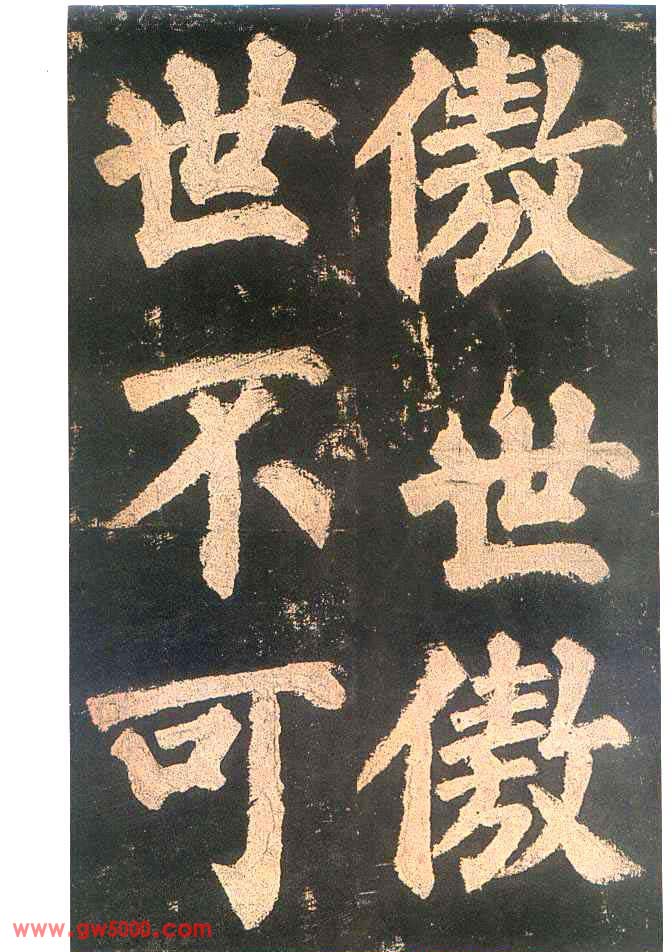 傲世傲
世不可
www.gw5000.com